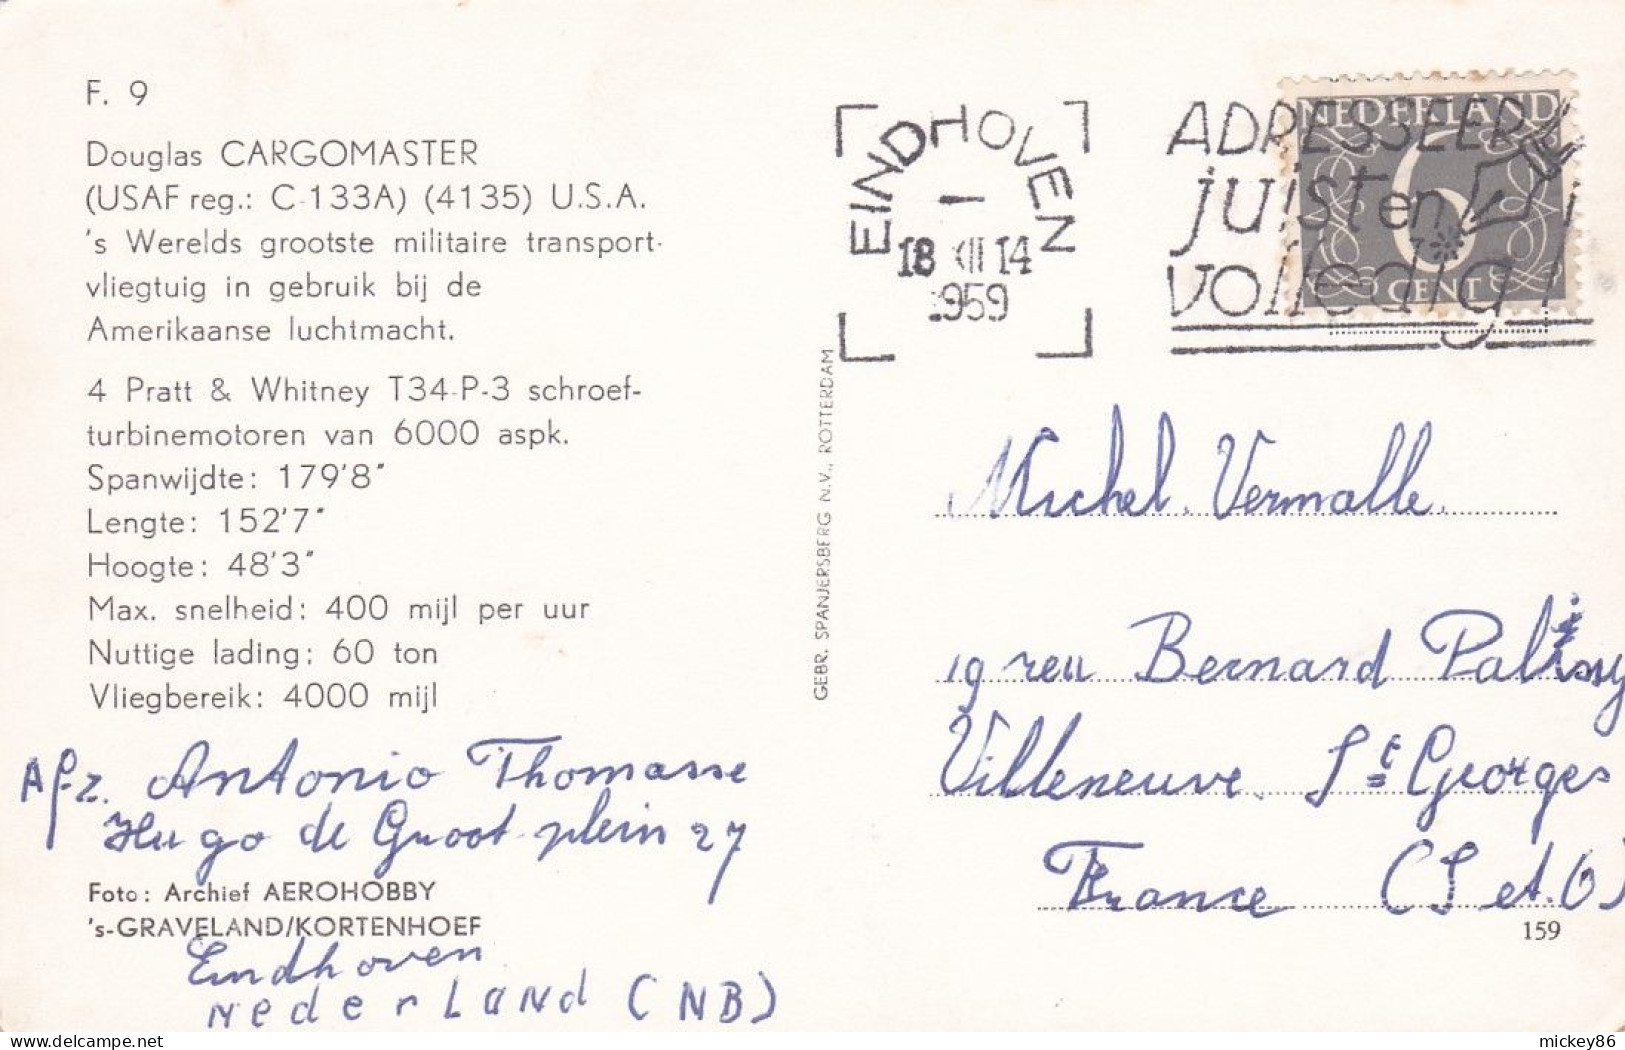 F. 9
Douglas CARGOMASTER
(USAF reg.: C-133A) (4135) U.S.A.
's Werelds grootste militaire transport-
vliegtuig in gebruik bij de
Amerikaanse luchtmacht.
4 Pratt & Whitney T34-P-3 schroef-
turbinemotoren van 6000 aspk.
Spanwijdte: 179'8"
Lengte: 152'7"
Hoogte: 48'3"
Max. snelheid: 400 mijl per uur
Nuttige lading: 60 ton
Vliegbereik: 4000 mijl
Afz. Antonio Thomasse
Hugo de Groot plein 27
Foto: Archief AEROHOBBY
's-GRAVELAND/KORTENHOEF
Eindhoven
Nederland (NB)
GEBR. SPANJERSBERG N.V., ROTTERDAM
EINDHOVEN
18 XII 14
1959
ADRESSEER
juist en
volledig!
NEDERLAND
6
CENT
Michel Vermalle.
19 reu Bernard Palissy
Villeneuve St Georges
France (S et O)
159
delcampe.net
mickey86